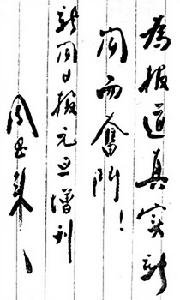 為报道真实新
闻而奮鬥!
新闻日报元旦增刊
周恩来